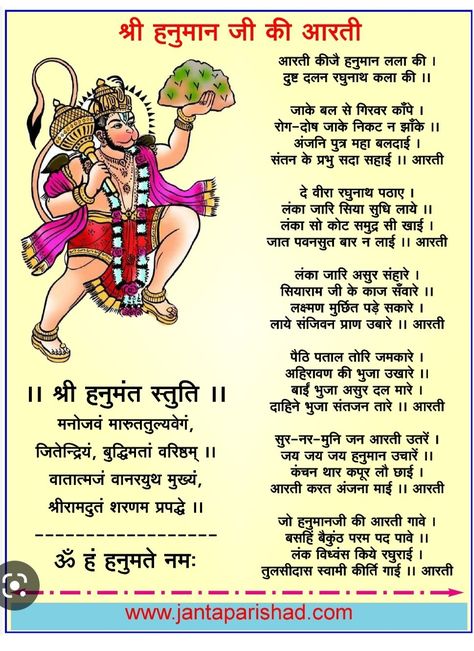 श्री हनुमान जी की आरती
आरती कीजै हनुमान लला की ।
दुष्ट दलन रघुनाथ कला की ।।
जाके बल से गिरवर काँपे ।
रोग-दोष जाके निकट न झाँके ।।
अंजनि पुत्र महा बलदाई ।
संतन के प्रभु सदा सहाई ।। आरती
दे वीरा रघुनाथ पठाए ।
लंका जारि सिया सुधि लाये ।।
लंका सो कोट समुद्र सी खाई ।
जात पवनसुत बार न लाई ।। आरती
लंका जारि असुर संहारे ।
सियाराम जी के काज सँवारे ।।
लक्ष्मण मुर्छित पड़े सकारे ।
लाये संजिवन प्राण उबारे ।। आरती
पैठि पताल तोरि जमकारे ।
अहिरावण की भुजा उखारे ।।
बाईं भुजा असुर दल मारे ।
दाहिने भुजा संतजन तारे ।। आरती
सुर-नर-मुनि जन आरती उतरें ।
जय जय जय हनुमान उचारें ।।
कंचन थार कपूर लौ छाई ।
आरती करत अंजना माई ।। आरती
जो हनुमानजी की आरती गावे ।
बसहिं बैकुंठ परम पद पावे ।।
लंक विध्वंस किये रघुराई ।
तुलसीदास स्वामी कीर्ति गाई ।। आरती
।। श्री हनुमंत स्तुति ।।
मनोजवं मारुततुल्यवेगं,
जितेन्द्रियं, बुद्धिमतां वरिष्ठम् ।।
वातात्मजं वानरयुथ मुख्यं,
श्रीरामदुतं शरणम प्रपद्धे ।।
ॐ हं हनुमते नमः
www.jantaparishad.com